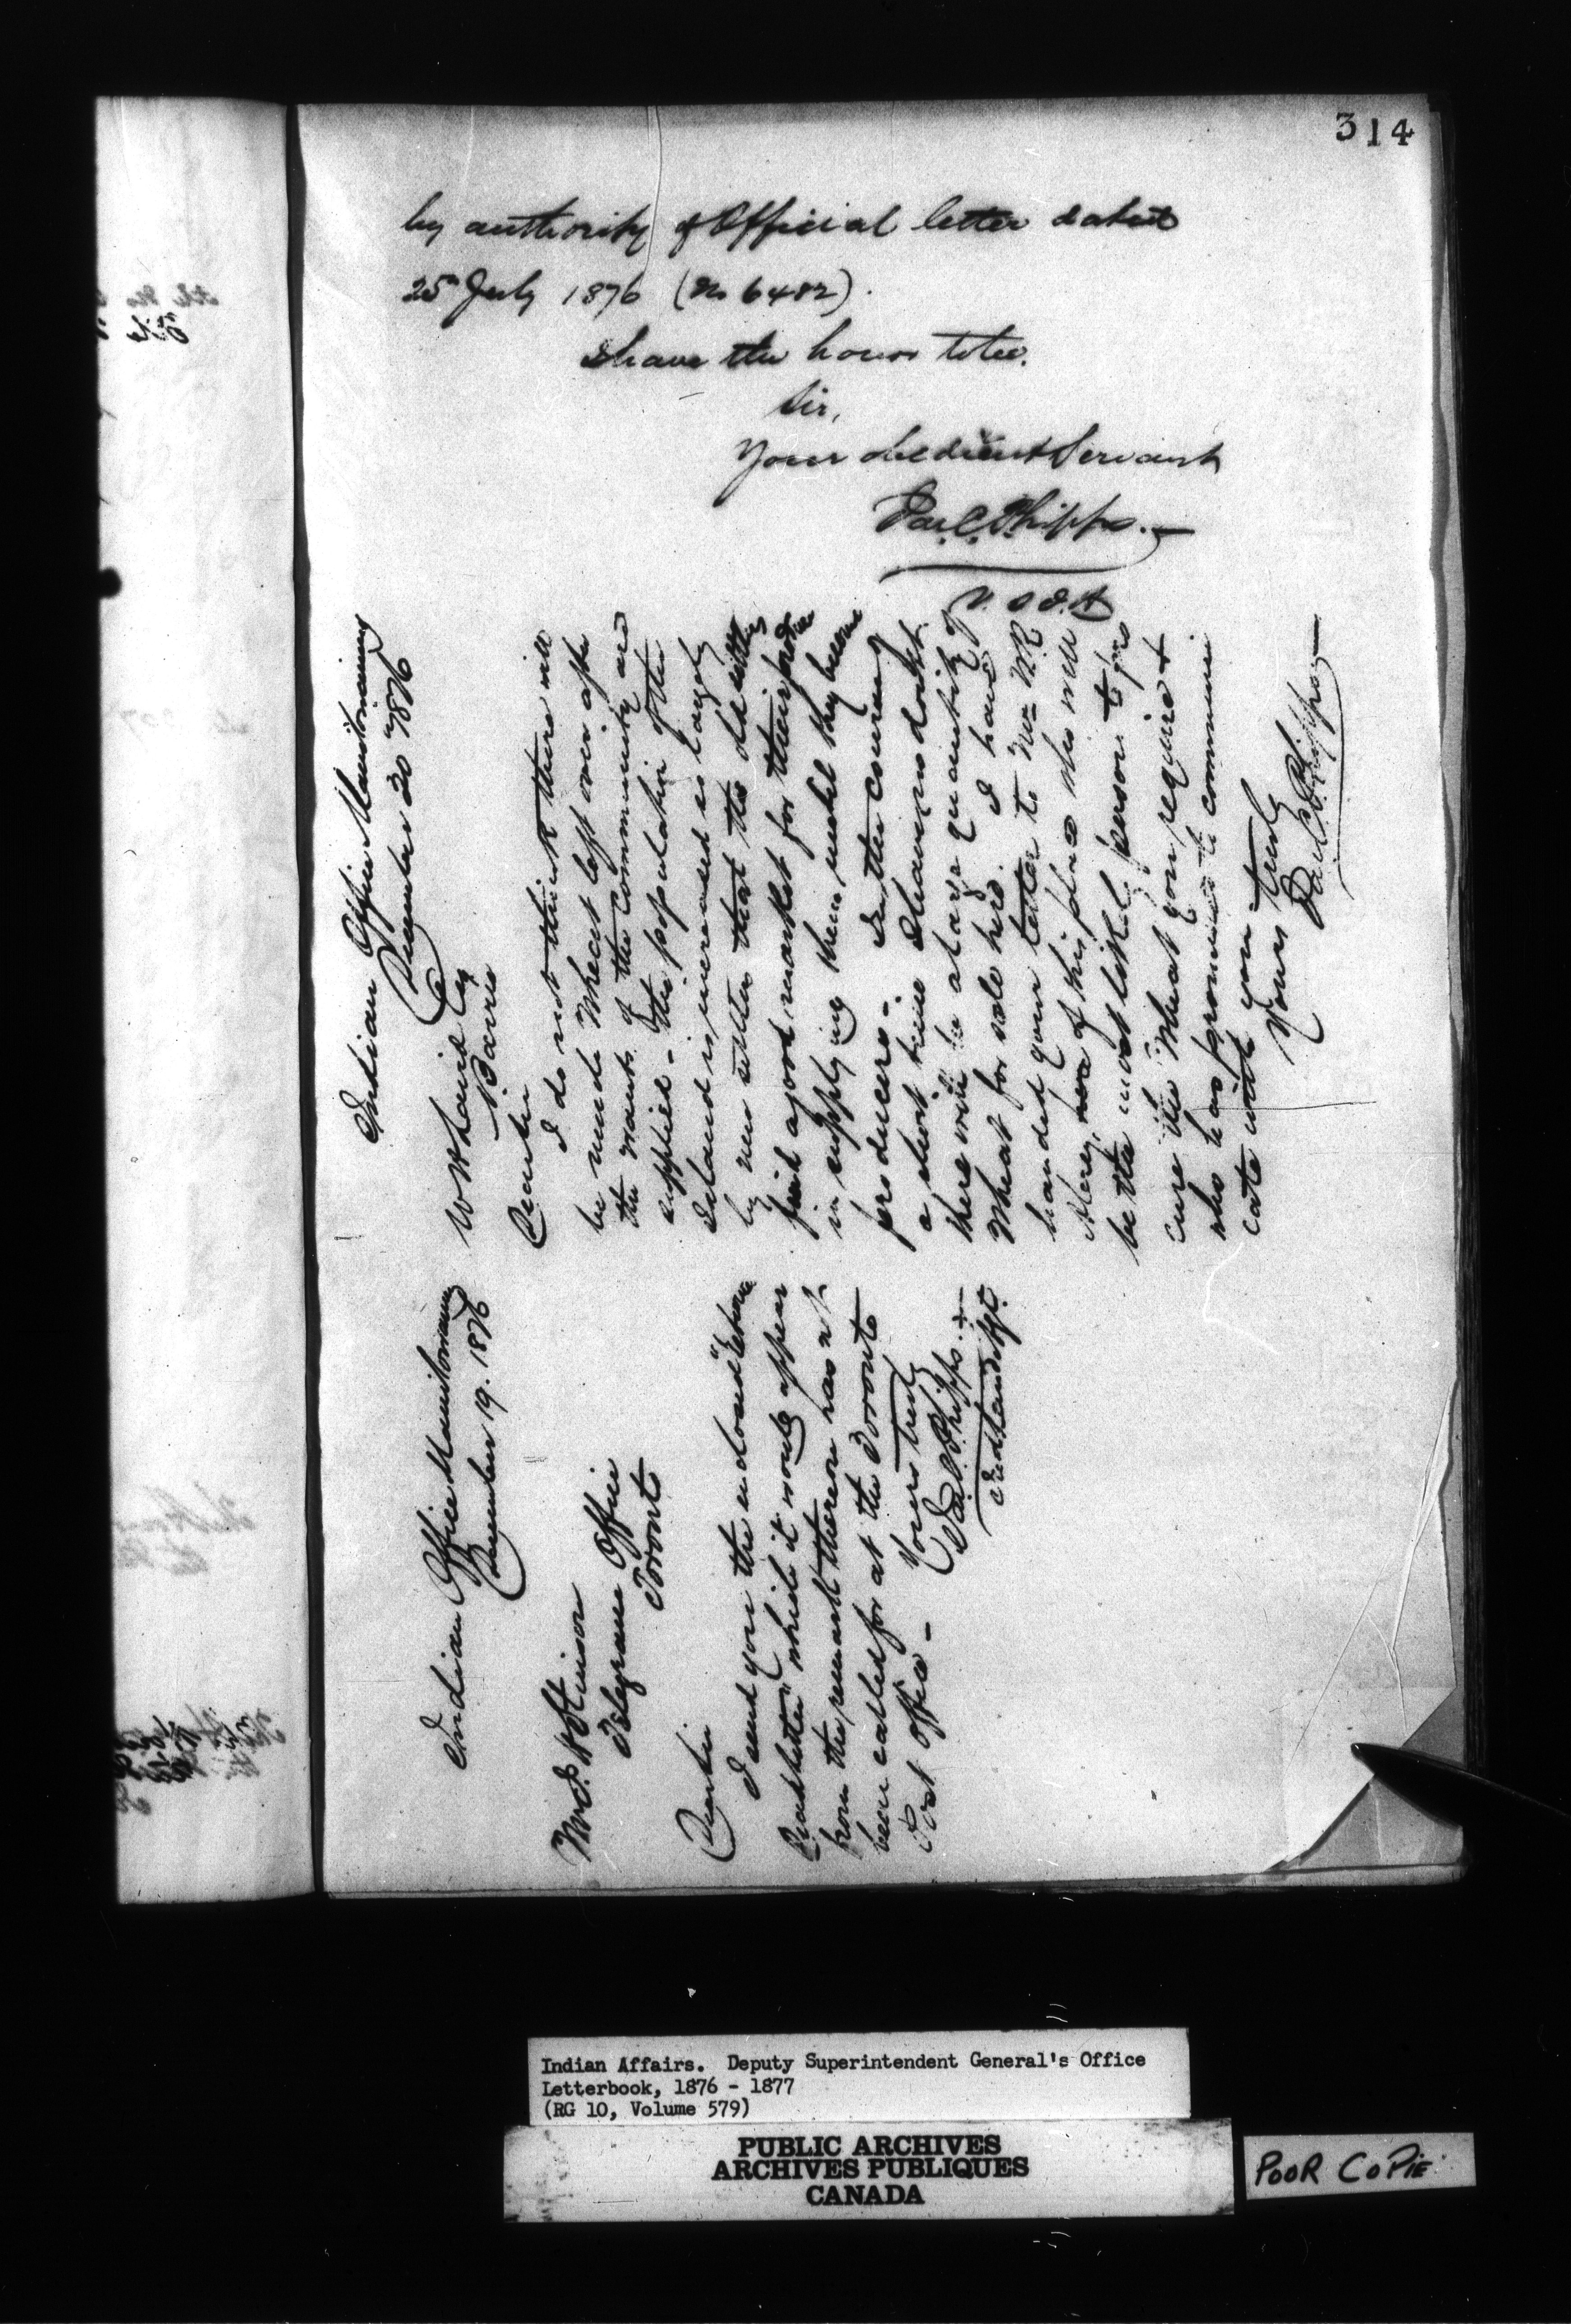 314
by authority of Official letter dated
25th July 1876 (No 6482).
I have the honor to be.
Sir,
Your obedient Servant
Jas. C. Phipps.
V. S. I. A
Indian Office Manitowaning
December 20th 1876
W W Laird Esq
Barrie
Dear Sir
I do not think there will
be much Wheat left over after
the wants of the community are
supplied - the population of the
Island is increased so largely
by new settlers that the old settlers
find a good market for their produce
in supplying them until they become
producers - In the course of
a short time I have no doubt
there will be a large quantity of
Wheat for sale here. I have
handed your letter to Mr W. R.
of this place who will
be the most likely person to pro
cure the Wheat you require &
who has promised to communi
cate with you
Yours truly
Jas. C. Phipps
Indian Office Manitowaning
December 19. 1876
Mr J. H Stinson
Telegram Office
Toronto
Dear Sir
I send you the enclosed
which it would appear
from the remark thereon has not
been called for at the Toronto
Post Office -
Yours truly
Jas. C. Phipps.
Ind Land Agt.
Indian Affairs. Deputy Superintendent General's Office
Letterbook, 1876 - 1877
(RG 10, Volume 579)
PUBLIC ARCHIVES
ARCHIVES PUBLIQUES
CANADA
POOR COPIE